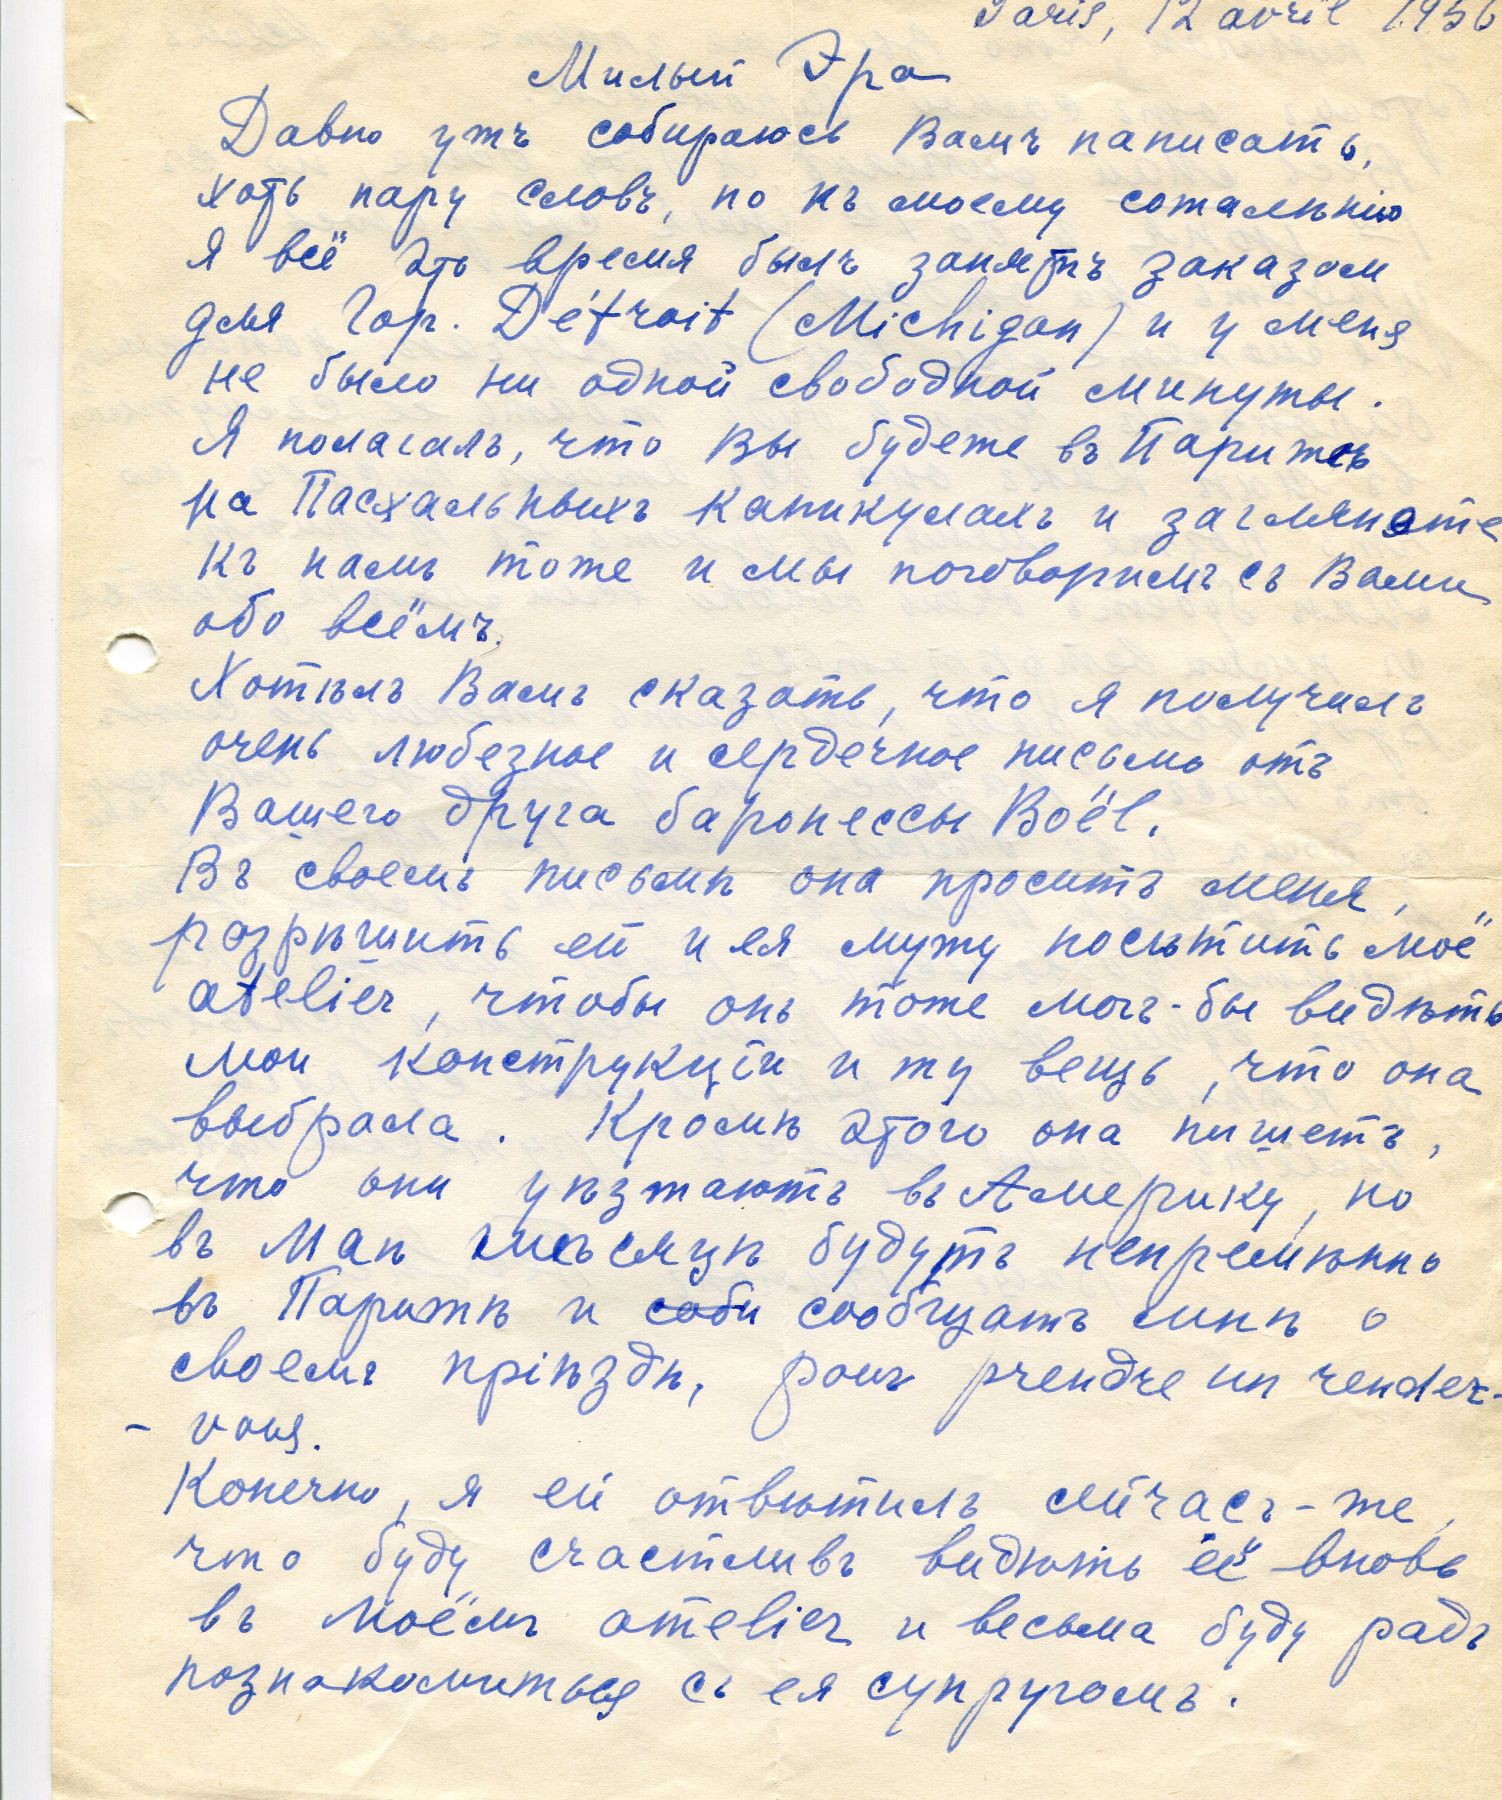 Paris, 12 avril 1956
Милый Эра
Давно ужъ собираюсь Вамъ написать,
хоть пару словъ, но къ моему сожалѣнію
я всё это время былъ занятъ заказом
для Гор. Détroit (Michigan) и у меня
не было ни одной свободной минуты.
Я полагалъ, что Вы будете въ Парижѣ
на Пасхальныхъ каникулахъ и заглянете
къ намъ тоже и мы поговоримъ съ Вами
обо всёмъ.
Хотѣлъ Вамъ сказать, что я получилъ
очень любезное и сердечное письмо отъ
Вашего друга баронессы Boël.
Въ своемъ письмѣ она проситъ меня,
разрѣшить ей и ея мужу посѣтить моё
atelier, чтобы онъ тоже могъ-бы видѣть
мои конструкціи и ту вещь, что она
выбрала. Кромѣ этого она пишетъ,
что они уѣзжаютъ въ Америку, но
въ Маѣ мѣсяцѣ будутъ непремѣнно
въ Парижѣ и соби сообщатъ мнѣ о
своемъ пріѣздѣ, pour prendre un rendez-
- vous.
Конечно, я ей отвѣтилъ сейчасъ-же,
что буду счастливъ видѣть её вновь
въ моёмъ atelier и весьма буду радъ
познакомиться съ ея супругомъ.